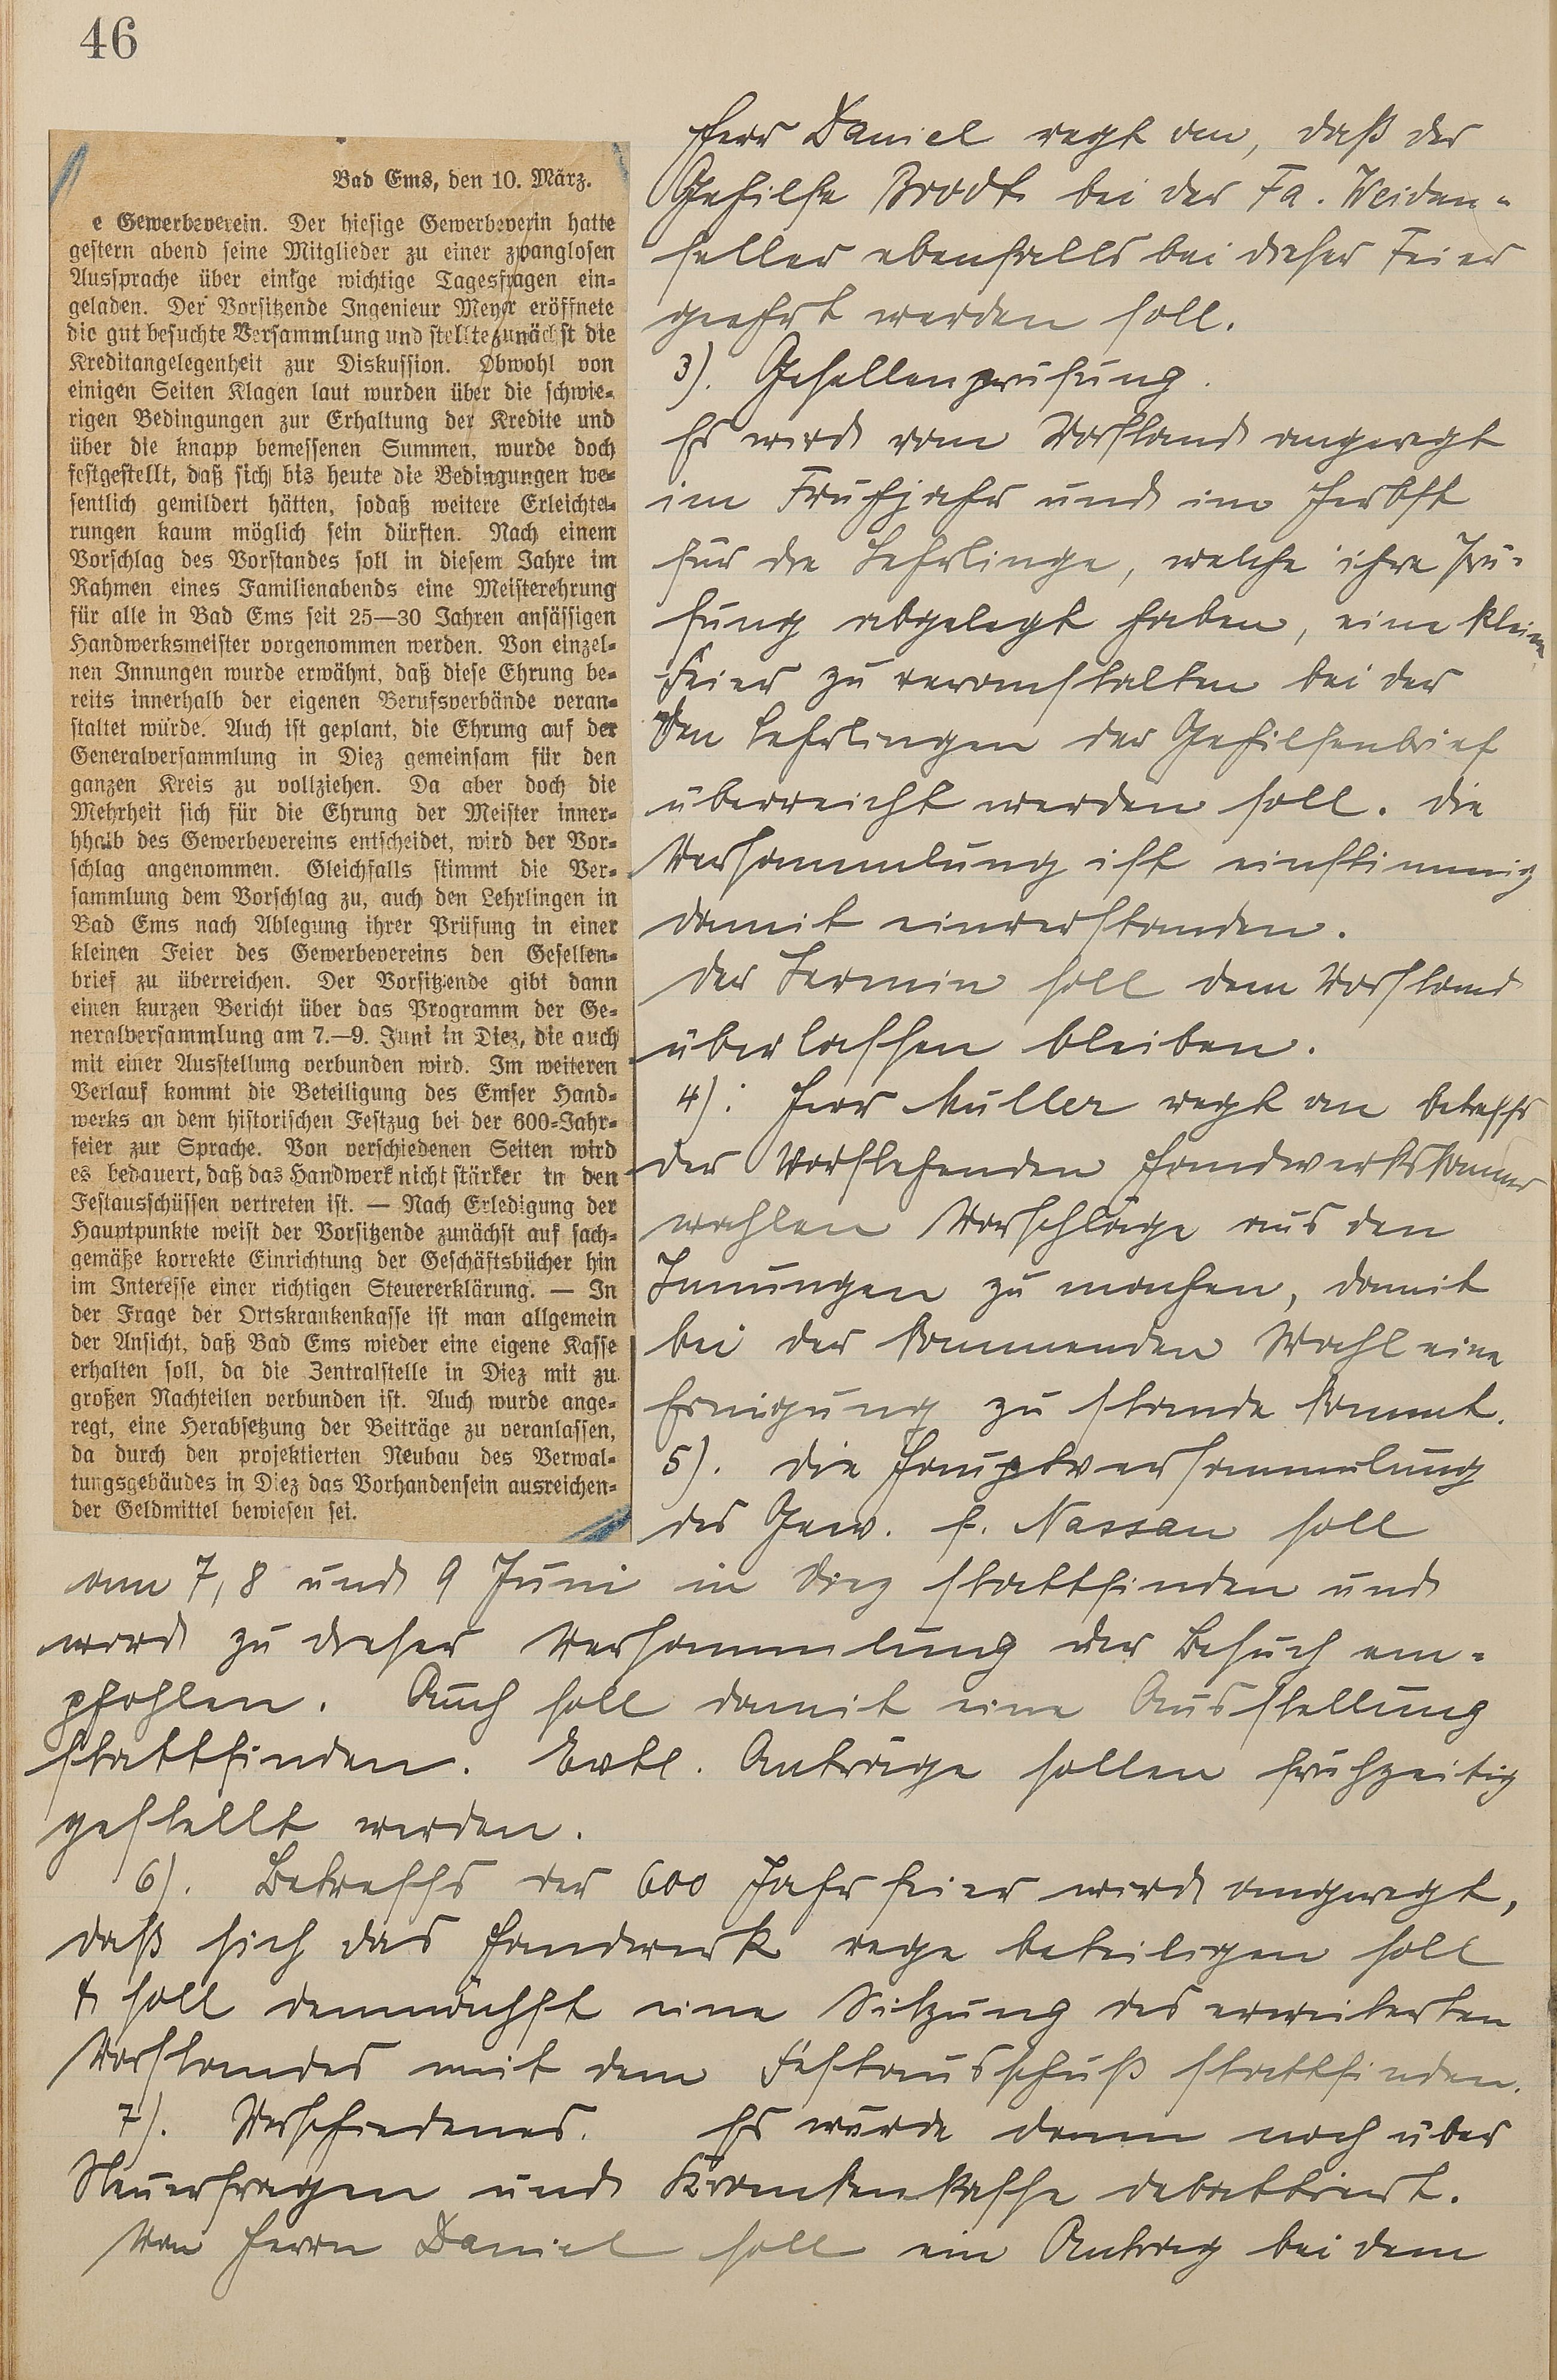 46
Bad Ems, den 10. März.
e Gewerbeverein. Der hiesige Gewerbeverin hatte
gestern abend seine Mitglieder zu einer zwanglosen
Aussprache über einige wichtige Tagesfragen ein-
geladen. Der Vorsitzende Ingenieur Meyer eröffnete
die gut besuchte Versammlung und stellte zunächst die
Kreditangelegenheit zur Diskussion. Obwohl von
einigen Seiten Klagen laut wurden über die schwie-
rigen Bedingungen zur Erhaltung der Kredite und
über die knapp bemessenen Summen, wurde doch
festgestellt, daß sich bis heute die Bedingungen we-
sentlich gemildert hätten, sodaß weitere Erleichte-
rungen kaum möglich sein dürften. Nach einem
Vorschlag des Vorstandes soll in diesem Jahre im
Rahmen eines Familienabends eine Meisterehrung
für alle in Bad Ems seit 25—30 Jahren ansässigen
Handwerksmeister vorgenommen werden. Von einzel-
nen Innungen wurde erwähnt, daß diese Ehrung be-
reits innerhalb der eigenen Berufsverbände veran-
staltet würde. Auch ist geplant, die Ehrung auf der
Generalversammlung in Diez gemeinsam für den
ganzen Kreis zu vollziehen. Da aber doch die
Mehrheit sich für die Ehrung der Meister inner-
hhalb des Gewerbevereins entscheidet, wird der Vor-
schlag angenommen. Gleichfalls stimmt die Ver-
sammlung dem Vorschlag zu, auch den Lehrlingen in
Bad Ems nach Ablegung ihrer Prüfung in einer
kleinen Feier des Gewerbevereins den Gesellen-
brief zu überreichen. Der Vorsitzende gibt dann
einen kurzen Bericht über das Programm der Ge-
neralversammlung am 7.—9. Juni in Diez, die auch
mit einer Ausstellung verbunden wird. Im weiteren
Verlauf kommt die Beteiligung des Emser Hand-
werks an dem historischen Festzug bei der 600-Jahr-
feier zur Sprache. Von verschiedenen Seiten wird
es bedauert, daß das Handwerk nicht stärker in den
Festausschüssen vertreten ist. — Nach Erledigung der
Hauptpunkte weist der Vorsitzende zunächst auf sach-
gemäße korrekte Einrichtung der Geschäftsbücher hin
im Interesse einer richtigen Steuererklärung. — In
der Frage der Ortskrankenkasse ist man allgemein
der Ansicht, daß Bad Ems wieder eine eigene Kasse
erhalten soll, da die Zentralstelle in Diez mit zu
großen Nachteilen verbunden ist. Auch wurde ange-
regt, eine Herabsetzung der Beiträge zu veranlassen,
da durch den projektierten Neubau des Verwal-
tungsgebäudes in Diez das Vorhandensein ausreichen-
der Geldmittel bewiesen sei.
Herr Daniel regt an, daß der
Gehilfe Brodt bei der Fa. Weiden-
feller ebenfalls bei dieser Feier
geehrt werden soll.
3). Gesellenprüfung.
Es wird vom Vorstand angeregt
im Frühjahr und im Herbst
für die Lehrlinge, welche ihre Prü-
fung abgelegt haben, eine kleine
Feier zu veranstalten bei der
den Lehrlingen der Gehilfenbrief
überreicht werden soll. Die
Versammlung ist einstimmig
damit einverstanden.
Der Termin soll dem Vorstand
überlassen bleiben.
4). Herr Müller regt an betreffs
der Vorstehenden Handwerkskammer
wahlen Vorschläge aus den
Innungen zu machen, damit
bei der kommenden Wahl eine
Einigung zu stande kommt.
5). Die Hauptversammlung
des Gew. f. Nassau soll
am 7, 8 und 9 Juni in Diez stattfinden und
wird zu dieser Versammlung der Besuch em-
pfohlen. Auch soll damit eine Ausstellung
stattfinden. Evtl. Anträge sollen frühzeitig
gestellt werden.
6). Betreffs der 600 Jahrfeier wird angeregt,
daß sich das Handwerk rege beteiligen soll
& soll demnächst eine Sitzung des erweiterten
Vorstandes mit dem Festausschuß stattfinden.
7). Verschiedenes. Es wurde dann noch über
Steuerfragen und Krankenkasse debattiert.
Von Herrn Daniel soll ein Antrag bei dem